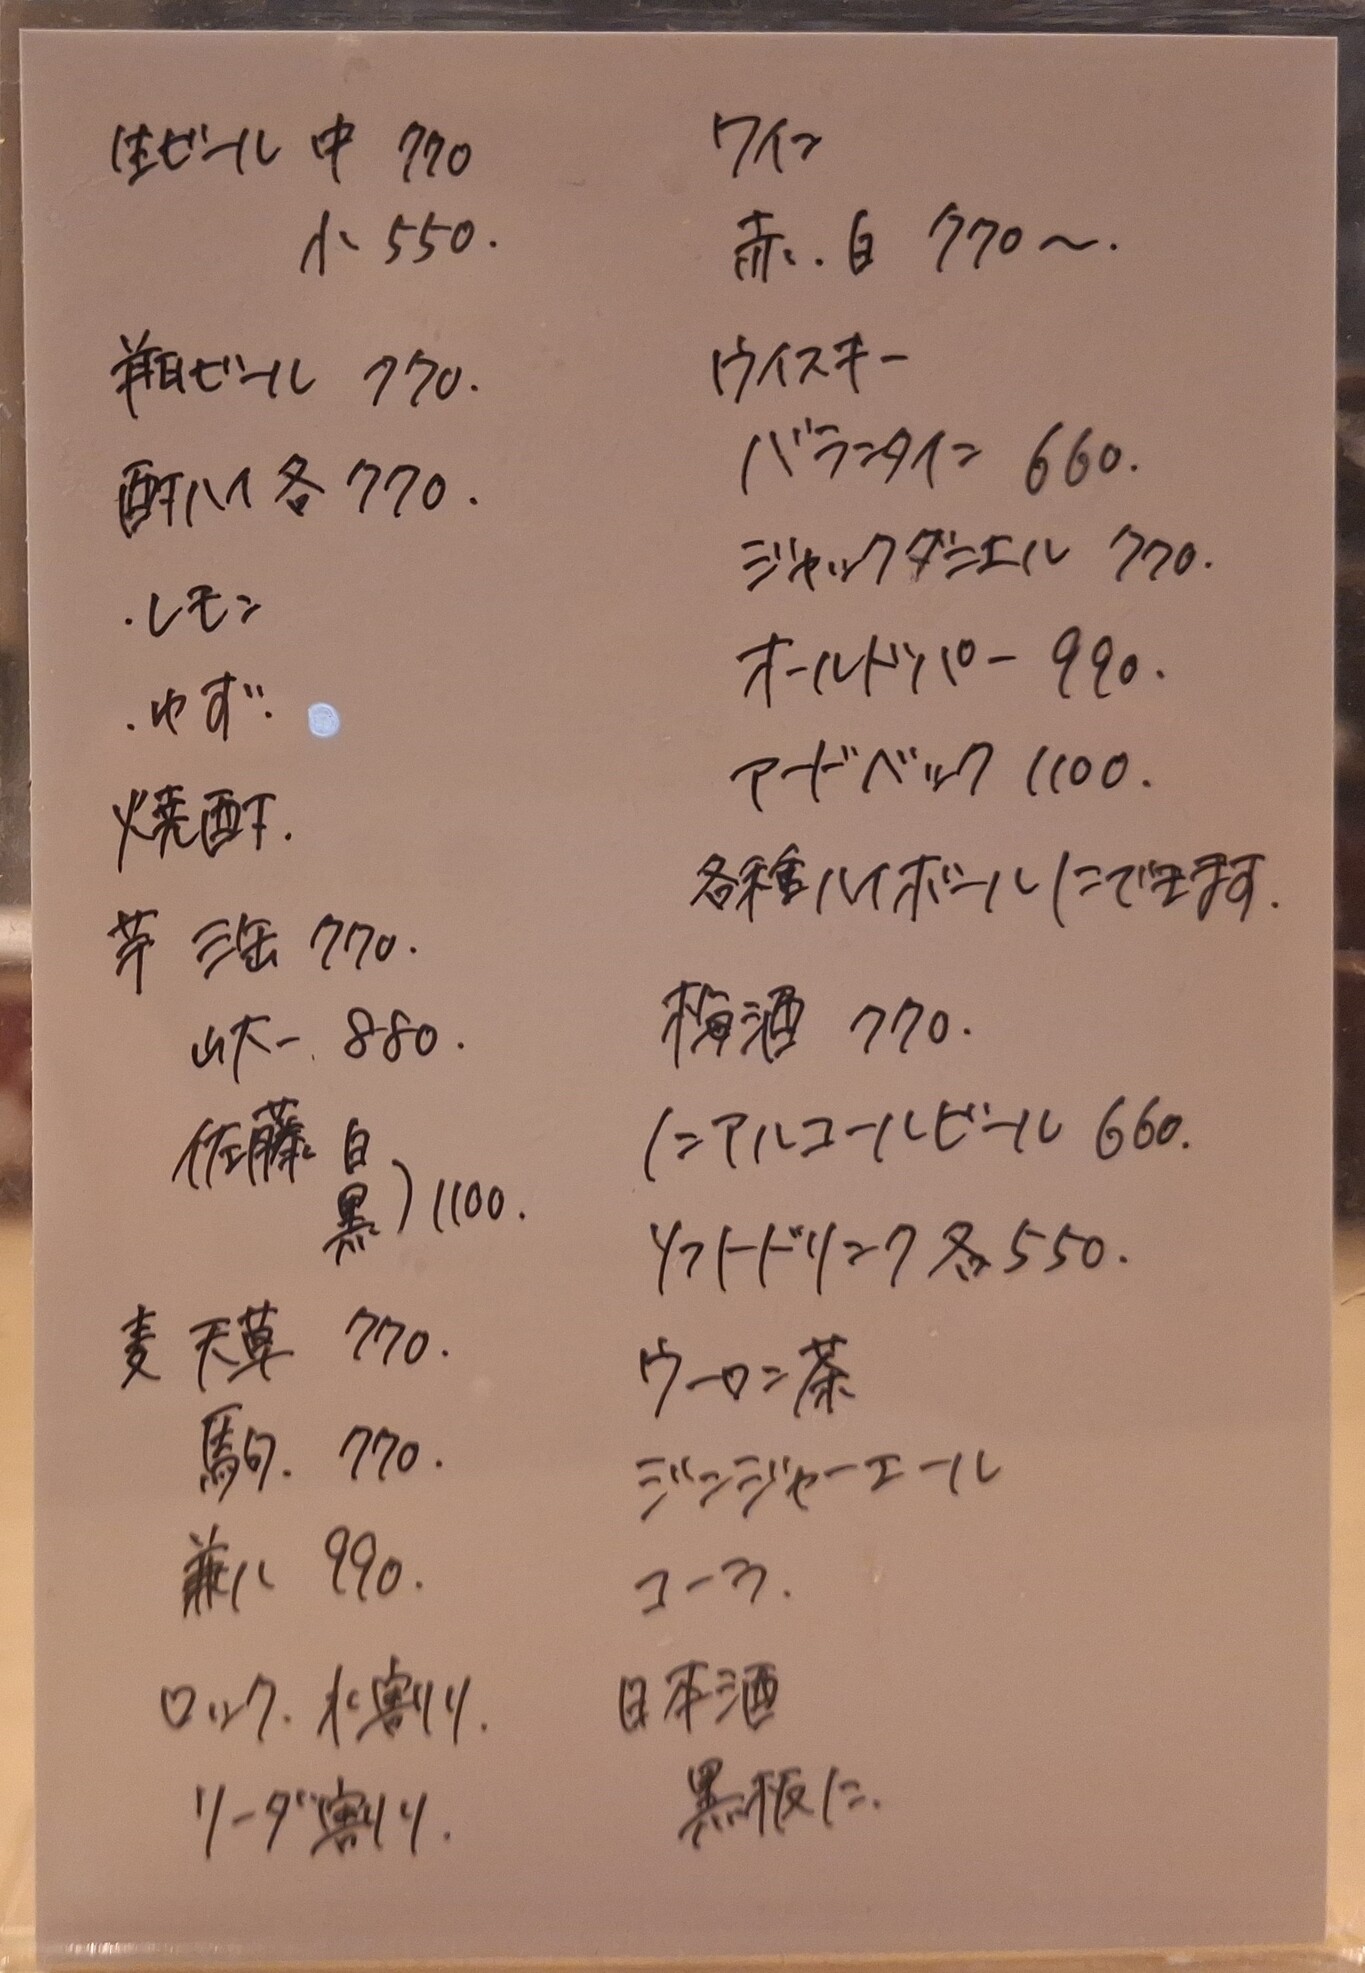 生ビール 中 770
小 550.
翔ビール 770.
酎ハイ 各 770.
・レモン
・ゆず.
焼酎.
芋 三岳 770.
山大一 880.
佐藤 白
黒) 1100.
麦 天草 770.
駒. 770.
兼八 990.
ロック. 水割り.
ソーダ割り.
ワイン
赤.白 770〜.
ウイスキー
バランタイン 660.
ジャックダニエル 770.
オールドパー 990.
アードベック 1100.
各種ハイボールにできます.
梅酒 770.
ノンアルコールビール 660.
ソフトドリンク 各 550.
ウーロン茶
ジンジャーエール
コーラ.
日本酒
黒板に.